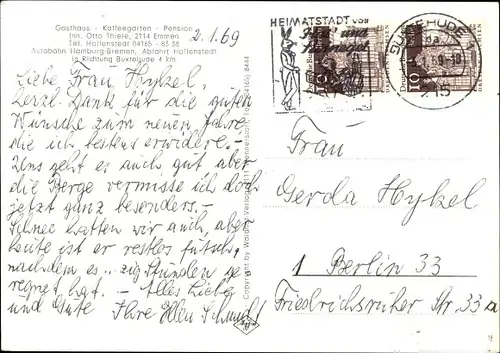 Gasthaus - Kaffeegarten - Pension
Inh. Otto Thiele, 2114 Emmen
Tel. Hollenstedt 04165 - 83 38
Autobahn Hamburg-Bremen, Abfahrt Hollenstedt
in Richtung Buxtehude 4 km
2.1.69
Liebe Frau Hykel,
herzl. Dank für die guten
Wünsche zum neuen Jahre
die ich bestens erwidere. -
Uns geht es auch gut aber
die Berge vermisse ich doch
jetzt ganz besonders. -
Schnee hatten wir auch, aber
heute ist er restlos futsch,
nachdem es Stunden ge
regnet hat. - Alles Liebe
und Gute Ihre Ellen
HEIMATSTADT VON
Has und
Swinegel
BUXTEHUDE 1
215
10
10
Frau
Gerda Hykel
1 Berlin 33
Friedrichsruher Str. 33a
Copyright by